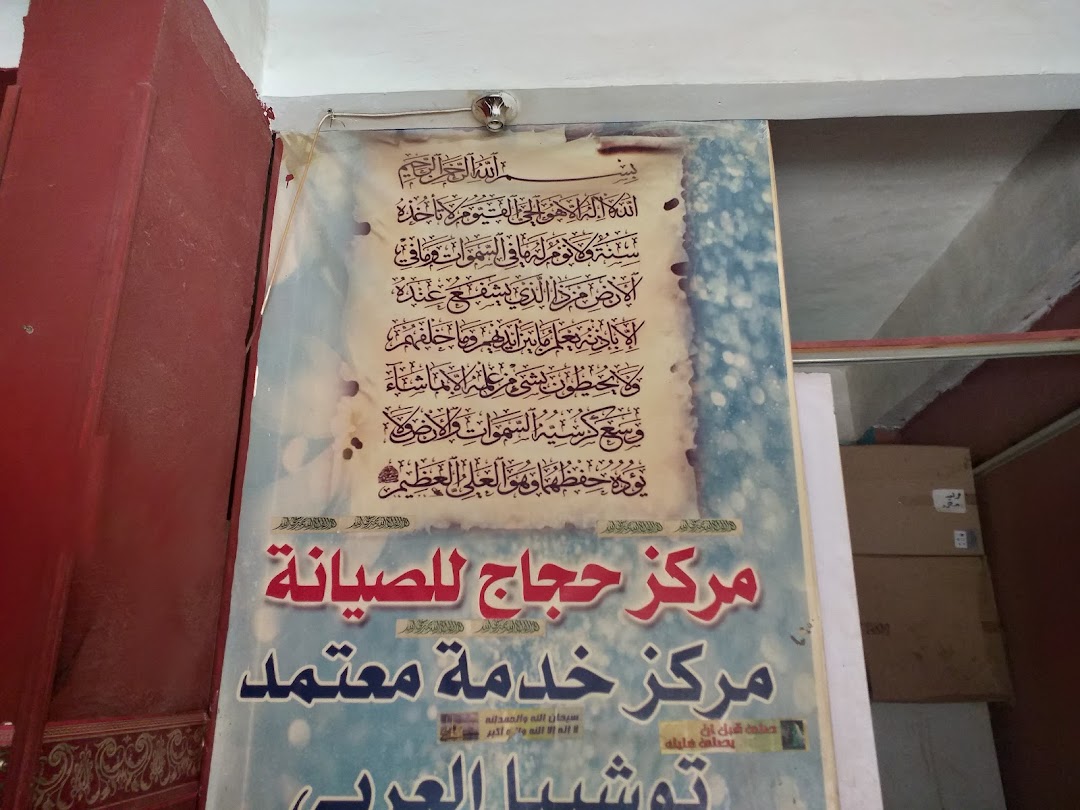 بسم الله الرحمن الرحيم
الله لا إله إلا هو الحي القيوم لا تأخذه
سنة ولا نوم له ما في السموات وما في
الأرض من ذا الذي يشفع عنده
إلا بإذنه يعلم ما بين أيديهم وما خلفهم
ولا يحيطون بشيء من علمه إلا بما شاء
وسع كرسيه السموات والأرض ولا
يؤده حفظهما وهو العلي العظيم
مركز حجاج للصيانة
مركز خدمة معتمد
سبحان الله والحمدلله
لا إله إلا الله والله أكبر
توشيبا العربي